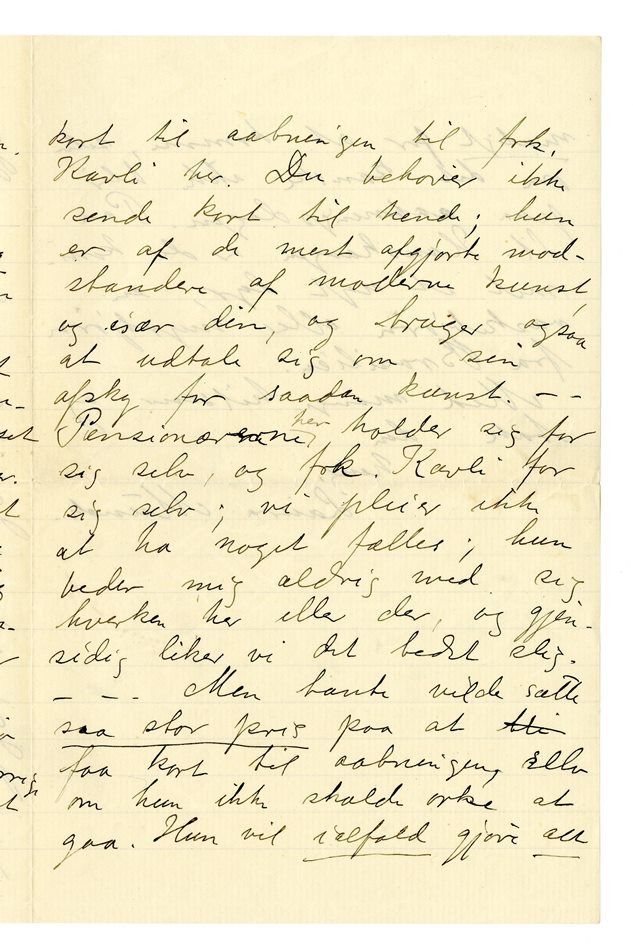 kort til aabningen til frk.
Kavli her. Du behøver ikke
sende kort til hende; hun
er af de mest afgjorte mod-
standere af moderne kunst,
og især din, og bruger ogsaa
at udtale sig om sin
afsky for saadan kunst. – –
Pensionærerne her holder sig for
sig selv, og frk. Kavli for
sig selv; vi pleier ikke
at ha noget fælles; hun
beder mig aldrig med sig
hverken her eller der, og gjen-
sidig liker vi det bedst slig.
– – – Men tante vilde sætte
saa stor pris paa at bli
faa kort til aabningen, selv
om hun ikke skulde orke at
gaa. Hun vil ialfald gjøre alt